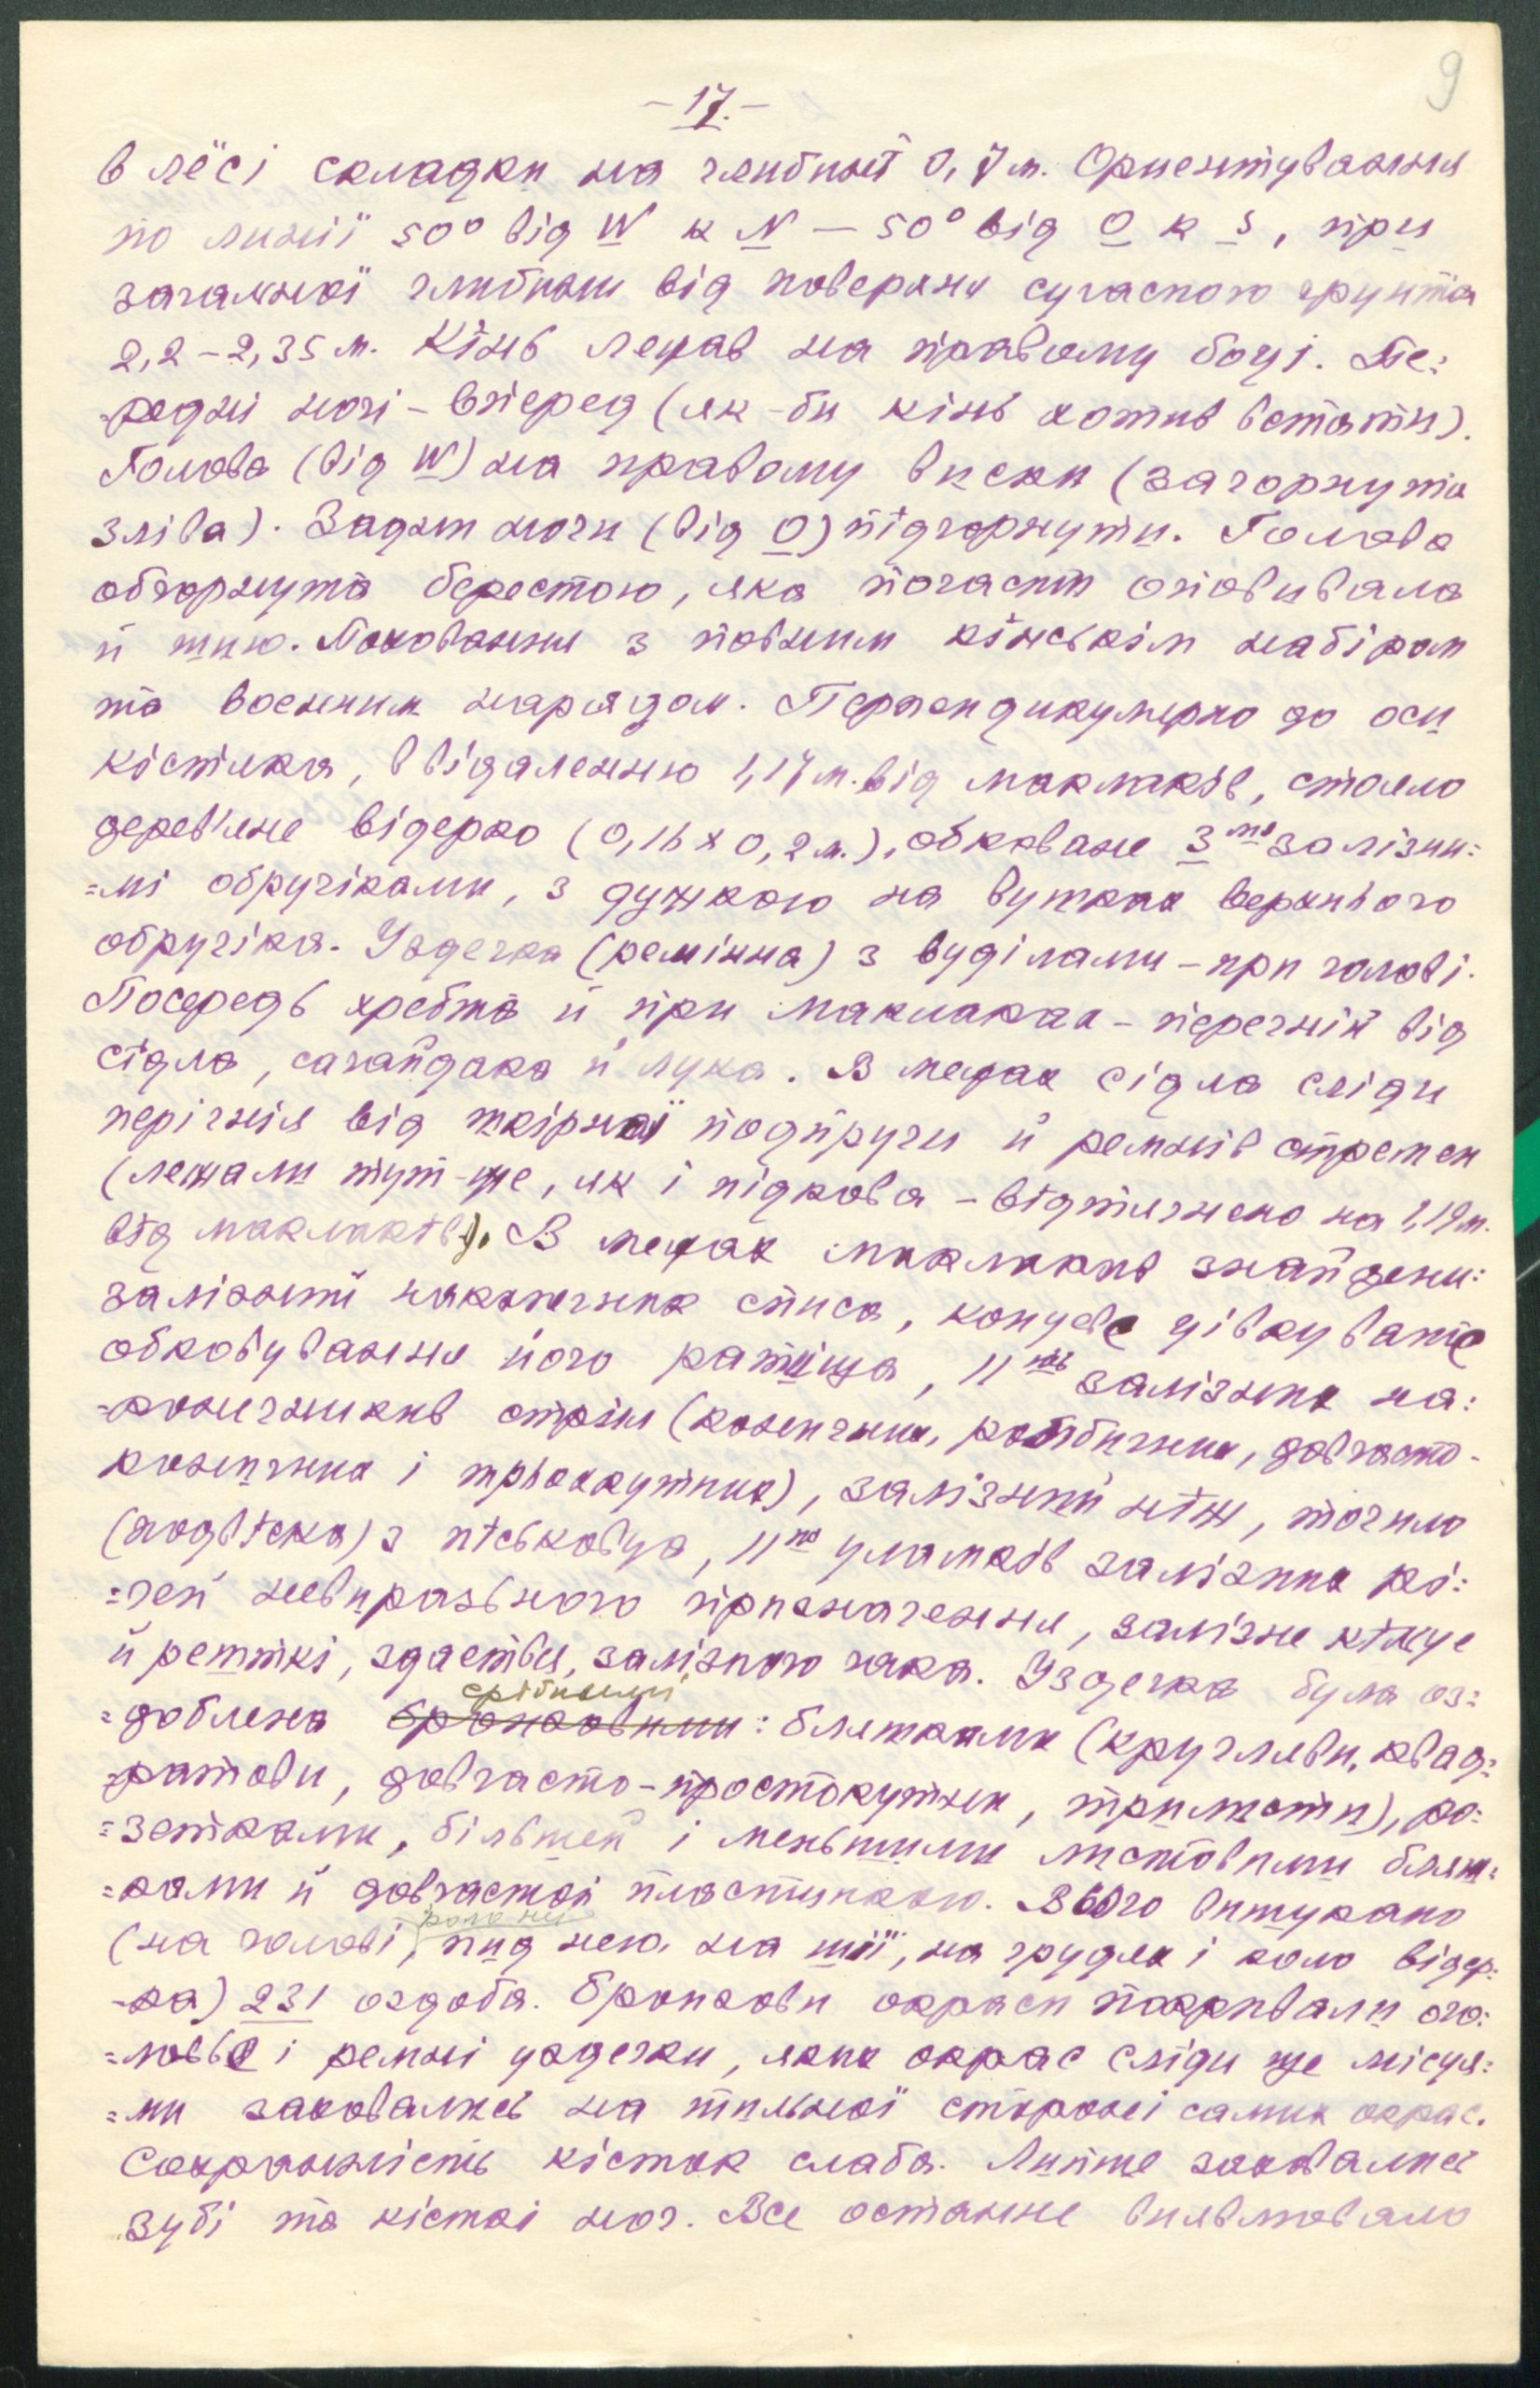 9
- 17. -
в лёсі складки на глибині 0,7 м. Ориентування
по линиї 50° від W к N — 50° від O к S, при
загальної глибини від поверхни сучасного грунта
2,2 – 2,35 м. Кінь лежав на правому боці. Пе:
=редні ногі – вперед (як-би кінь хотив встати).
Голова (від W) на правому виски (загорнута
зліва). Задні ноги (від O) підгорнути. Голова
обгорнута берестою, яка почасти оповивала
й шию. Поховання з повним кінськім набіром
та военним нарядом. Перпендикулярно до оси
кістяка, в відаленню 1,17 м. від маклаків, стояло
дерев'яне відерко (0,16 х 0,2 м.), обковане 3 ма залізни:
=мі обручіками, з дужкою на вушках верхнього
обручіка. Уздечка (ремінна) з вуділами – при голові.
Посередь хребта й при маклаках – перегній від
сідла, сагайдака й лука. В межах сідла сліди
перігнія від шкірної подпруги й ремнів стремен
(лежали тут-же, як і підкова – відтягнено на 1,19 м.
від маклаків). В межах маклаків знайдени:
залізний наконечник списа, концеве цівкувате
обковування його ратища, 11 ть залізних на:
=конечників стріл (конични, ромбични, довгасто-
коничних і трьохкутних), залізний ніж, точило
(подвіска) з пісковця, 11 то уламків залізних рі:
=чей невиразьного призначення, залізне кільце
й решткі, здаеться, залізного гака. Уздечка була оз:
=доблена срібними бронзовими: бляшками (кругляви, квад:
=ратови, довгасто-простокутни, трилисти), ро:
=зетками, більшей і меньшими листовими бляш:
=ками й довгастой пластинкою. Всього вишукано
(на голові, коло неї під нею на шиї, на грудях і коло відер:
=ка) 231 оздоба. Бронзови окраси покривали ого:
=ловье і ремні уздечки, яких окрас сліди ще місця:
=ми заховались на тильної стороні самих окрас.
Сохранність кісток слаба. Липше заховались
зубі та кісткі ног. Все останне виявлювало